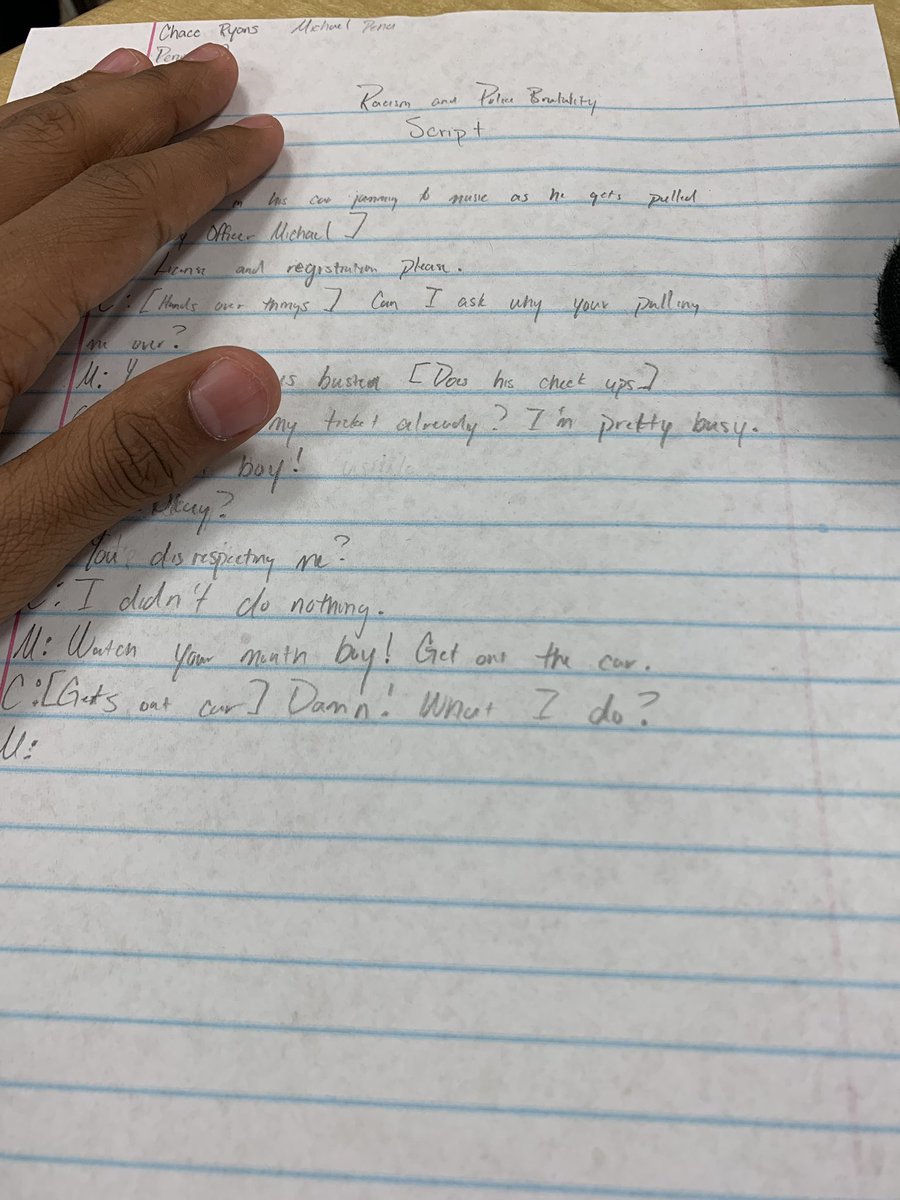 Chace Ryans Michael Pena
Racism and Police Brutality
Script
his car jamming to music as he gets pulled
Officer Michael]
License and registration please.
C: [Hands over things] Can I ask why your pulling
me over?
M: is busted [Does his check ups]
my ticket already? I'm pretty busy.
boy!
Okay?
You disrespecting me?
C: I didn't do nothing.
M: Watch your mouth boy! Get out the car.
C: [Gets out car] Damn! What I do?
M: